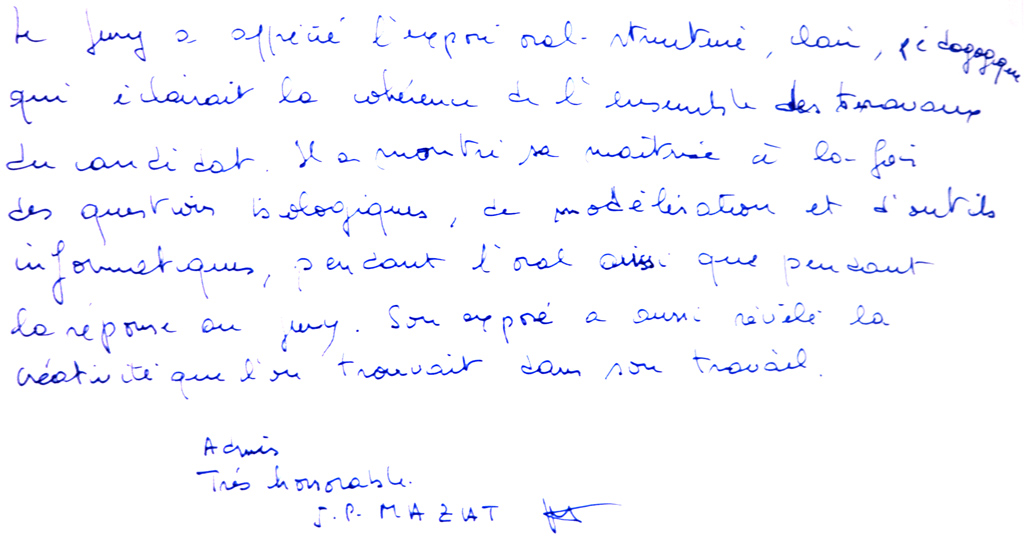 Le jury a apprécié l'exposé oral structuré, clair, pédagogique
qui éclairait la cohérence de l'ensemble des travaux
du candidat. Il a montré sa maîtrise à la fois
des questions biologiques, de modélisation et d'outils
informatiques, pendant l'oral ainsi que pendant
la réponse au jury. Son exposé a aussi révélé la
créativité que l'on trouvait dans son travail.
Admis
Très honorable.
J.P. MAZAT